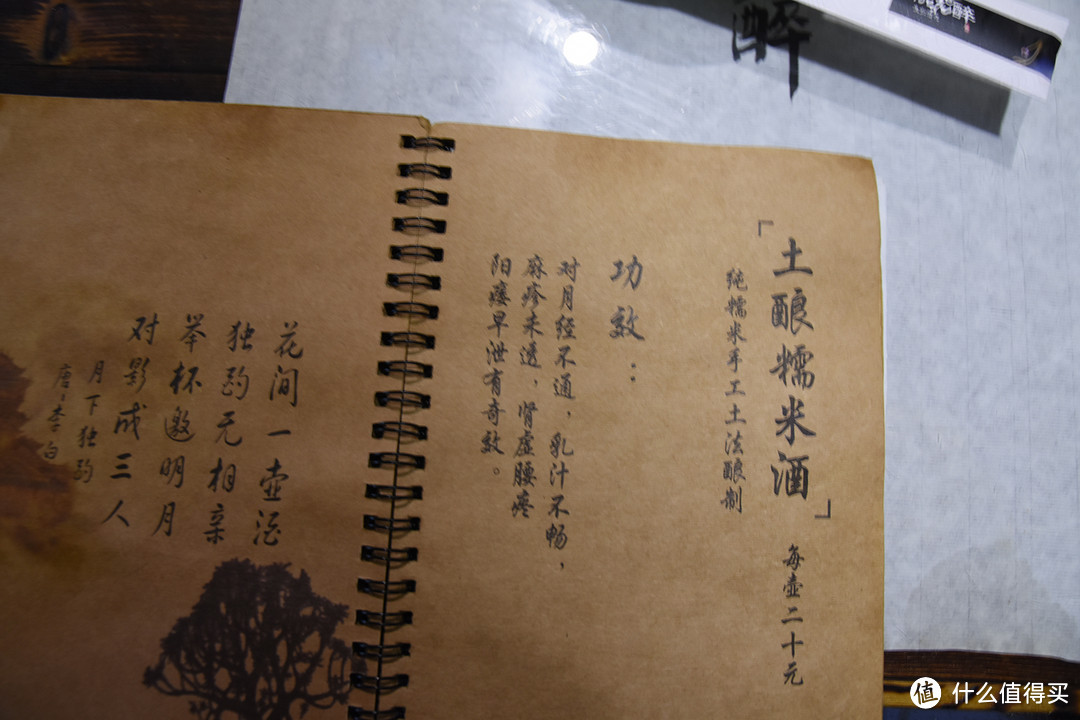 醉
「土酿糯米酒」 每壶二十元
纯糯米手工土法酿制
功效：
对月经不通，乳汁不畅，
麻疹未透，肾虚腰疼
阳痿早泄有奇效。
花间一壶酒
独酌无相亲
举杯邀明月
对影成三人
月下独酌
唐·李白
值 什么值得买